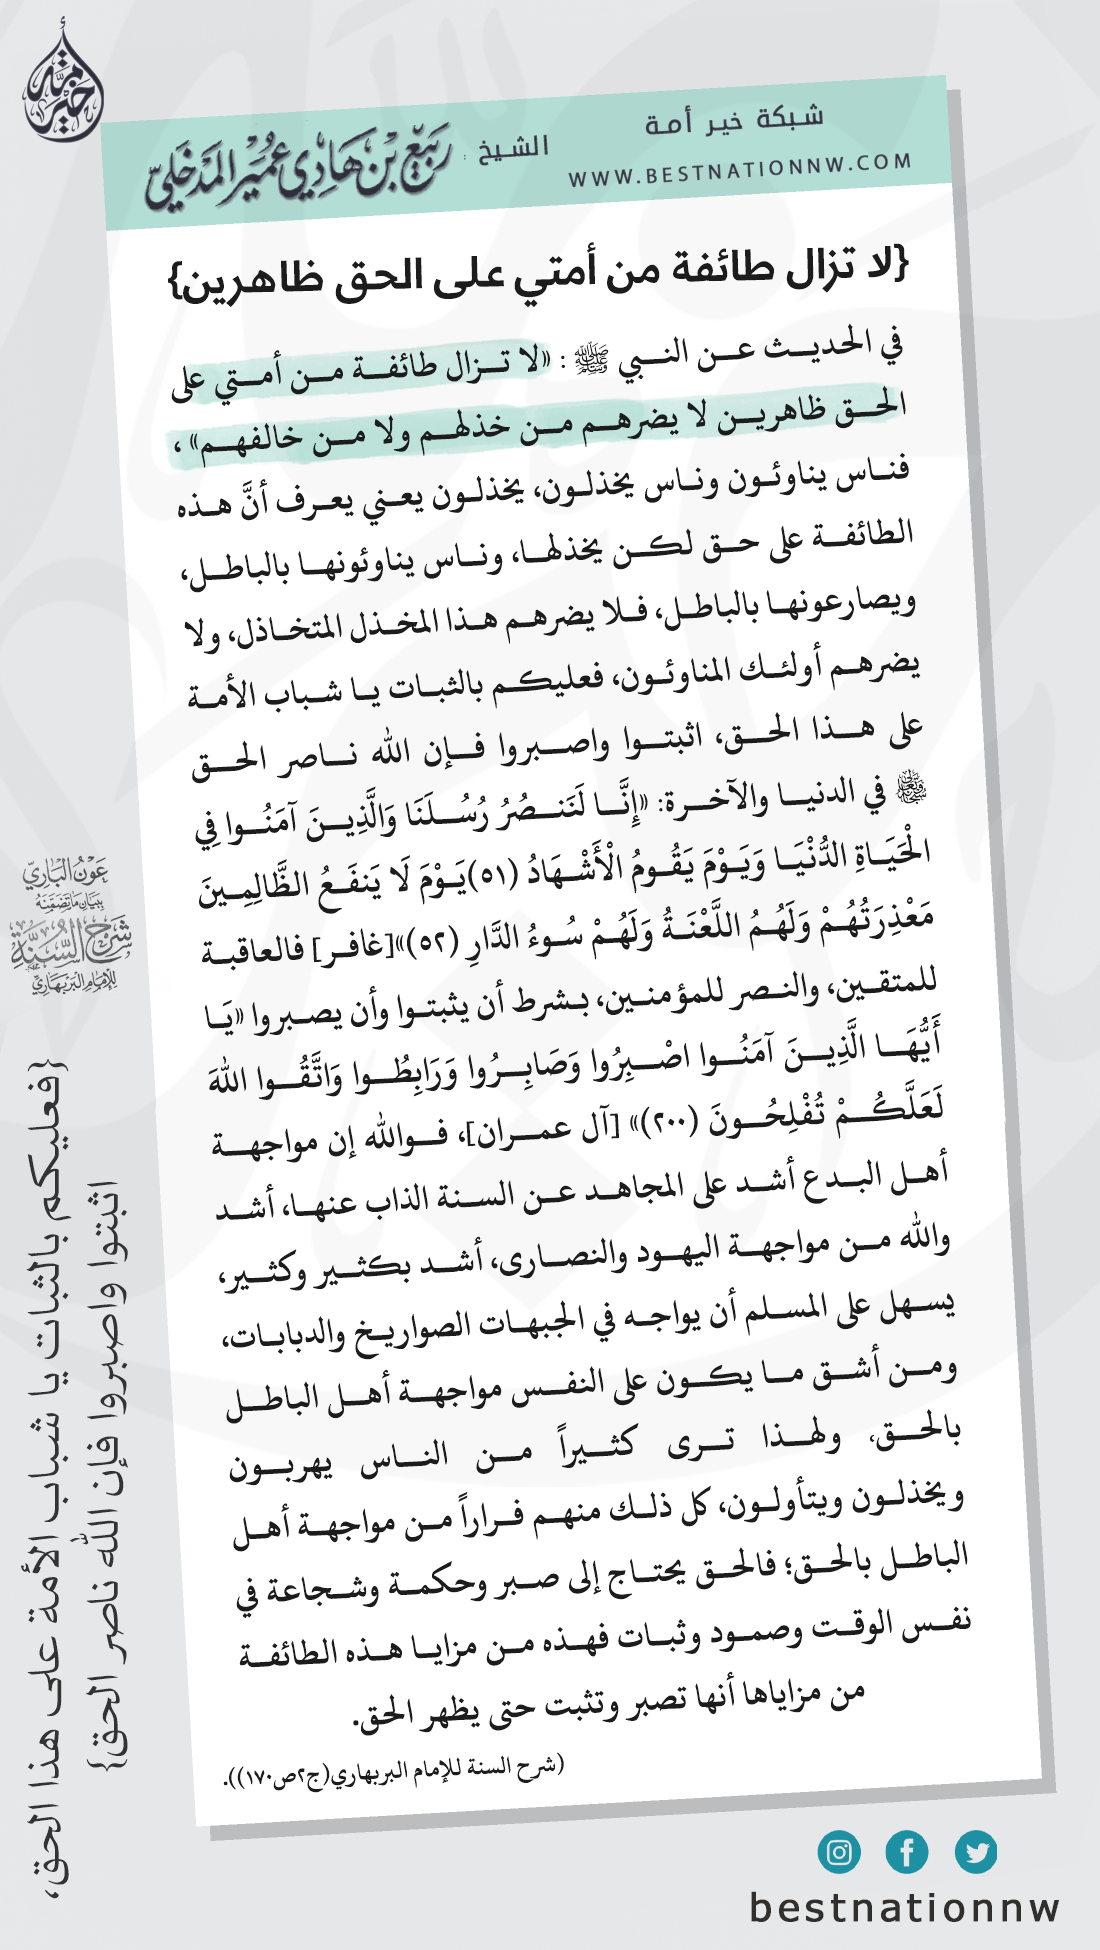 خير أمة
شبكة خير أمة
WWW.BESTNATIONNW.COM
الشيخ : ربيع بن هادي عمير المدخلي
{لا تزال طائفة من أمتي على الحق ظاهرين}
في الحديث عن النبي ﷺ : «لا تزال طائفة من أمتي على
الحق ظاهرين لا يضرهم من خذلهم ولا من خالفهم» ،
فناس يناوئون وناس يخذلون، يخذلون يعني يعرف أنَّ هذه
الطائفة على حق لكن يخذلها، وناس يناوئونها بالباطل،
ويصارعونها بالباطل، فلا يضرهم هذا المخذل المتخاذل، ولا
يضرهم أولئك المناوئون، فعليكم بالثبات يا شباب الأمة
على هذا الحق، اثبتوا واصبروا فإن الله ناصر الحق
في الدنيا والآخرة: «إِنَّا لَنَنصُرُ رُسُلَنَا وَالَّذِينَ آمَنُوا فِي
الْحَيَاةِ الدُّنْيَا وَيَوْمَ يَقُومُ الْأَشْهَادُ (٥١)يَوْمَ لَا يَنفَعُ الظَّالِمِينَ
مَعْذِرَتُهُمْ وَلَهُمُ اللَّعْنَةُ وَلَهُمْ سُوءُ الدَّارِ (٥٢)»[غافر] فالعاقبة
للمتقين، والنصر للمؤمنين، بشرط أن يثبتوا وأن يصبروا «يَا
أَيُّهَا الَّذِينَ آمَنُوا اصْبِرُوا وَصَابِرُوا وَرَابِطُوا وَاتَّقُوا اللهَ
لَعَلَّكُمْ تُفْلِحُونَ (٢٠٠)» [آل عمران]، فوالله إن مواجهة
أهل البدع أشد على المجاهد عن السنة الذاب عنها، أشد
والله من مواجهة اليهود والنصارى، أشد بكثير وكثير،
يسهل على المسلم أن يواجه في الجبهات الصواريخ والدبابات،
ومن أشق ما يكون على النفس مواجهة أهل الباطل
بالحق، ولهذا ترى كثيراً من الناس يهربون
ويخذلون ويتأولون، كل ذلك منهم فراراً من مواجهة أهل
الباطل بالحق؛ فالحق يحتاج إلى صبر وحكمة وشجاعة في
نفس الوقت وصمود وثبات فهذه من مزايا هذه الطائفة
من مزاياها أنها تصبر وتثبت حتى يظهر الحق.
(شرح السنة للإمام البربهاري(ج٢ص١٧٠)).
عَوْنُ البَارِيّ
بِبَيَانِ مَا تَضَمَّنَهُ
شَرْحُ السُّنَّةِ
لِلإِمَامِ البَرْبَهَارِيّ
{فعليكم بالثبات يا شباب الأمة على هذا الحق،
اثبتوا واصبروا فإن الله ناصر الحق}
bestnationnw